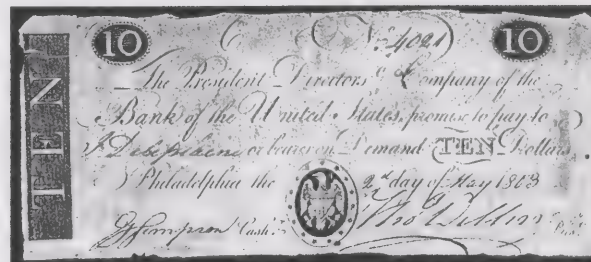 10 C No. 4021 10
TEN
The President Directors & Company of the
Bank of the United States, promise to pay to
or bearer on Demand TEN Dollars
Philadelphia the 2nd day of May 1803
G Simpson Cash.r Tho Willing Pres.t